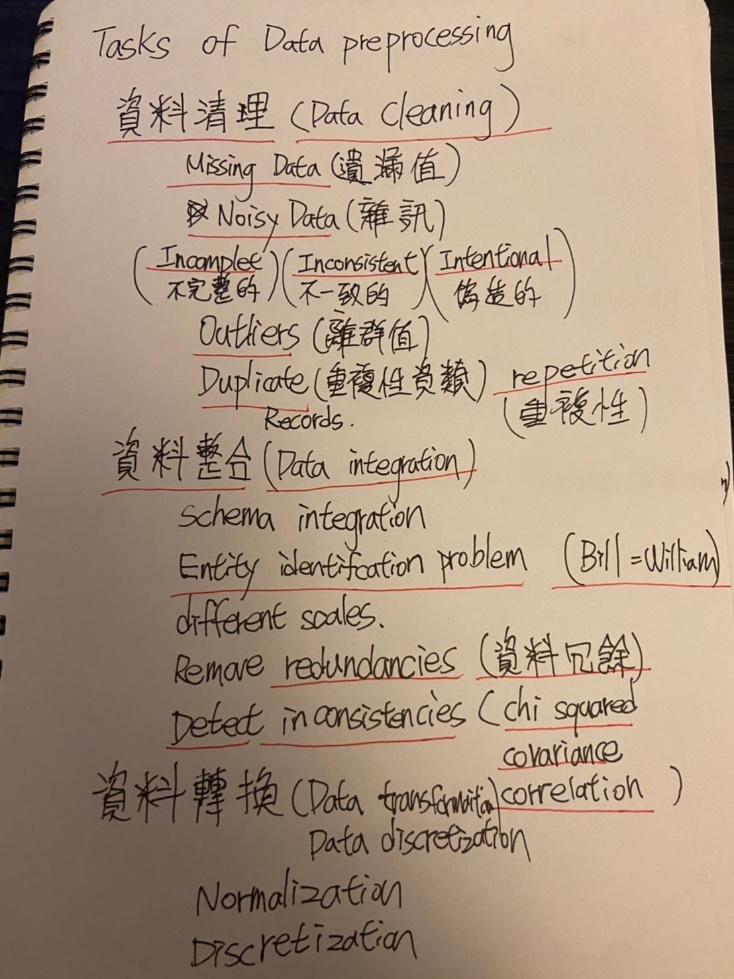 Tasks of Data preprocessing
資料清理 (Data cleaning)
Missing Data (遺漏值)
Noisy Data (雜訊)
(Incomplet) (Inconsistent) (Intentional)
不完整的 不一致的 偽造的
Outliers (離群值)
Duplicate (重複性資類) repetition
Records. (重複性)
資料整合 (Data integration)
Schema integration
Entity identifcation problem (Bill = William)
different scales.
Remove redundancies (資料冗餘)
Detect inconsistencies (chi squared
covariance
correlation)
資料轉換 (Data transformation)
Data discretization
Normalization
Discretization